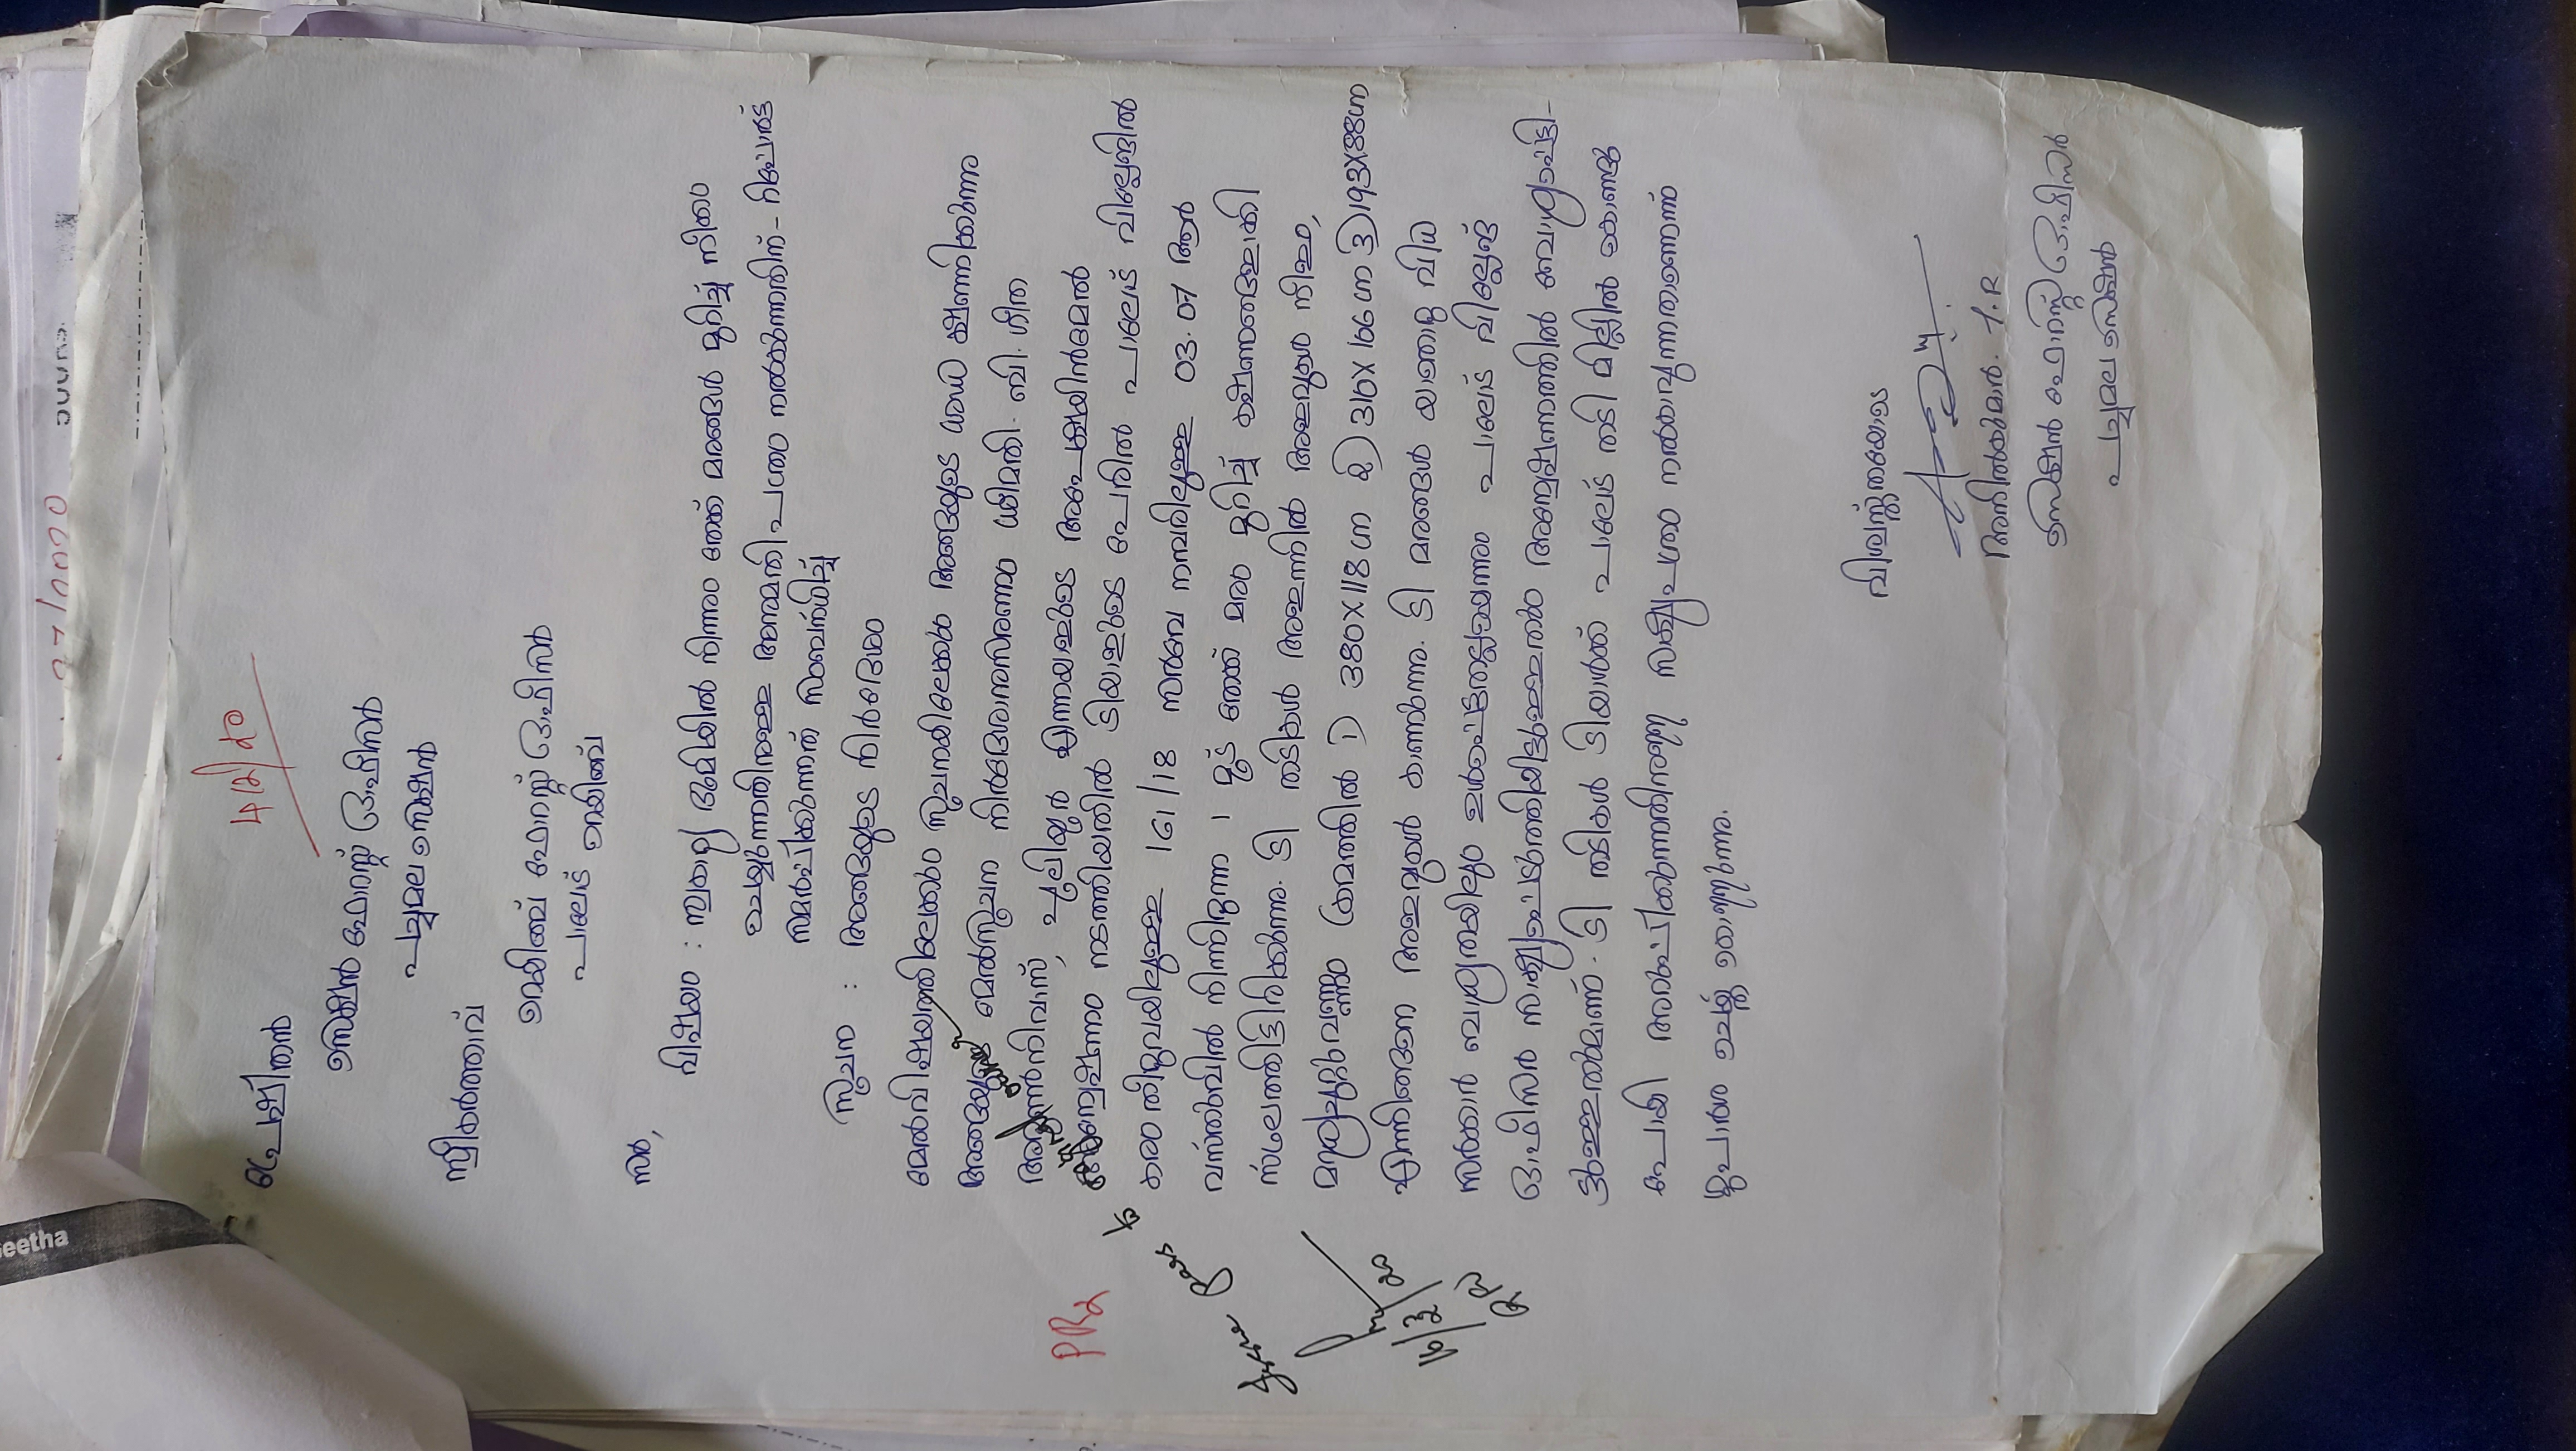 eetha
27/2020
500 Rs.
4121/20
പ്രേഷിതൻ
സെക്ഷൻ ഫോറസ്റ്റ് ഓഫീസർ
പച്ചമല സെക്ഷൻ
സ്വീകർത്താവ്
റെയിഞ്ച് ഫോറസ്റ്റ് ഓഫീസർ
പാലോട് റെയിഞ്ച്
സർ,
വിഷയം : സ്വകാര്യ ഭൂമിയിൽ നിന്നും തേക്ക് മരങ്ങൾ മുറിച്ച് നീക്കം
ചെയ്യുന്നതിനുള്ള അനുമതി പത്രം നൽകുന്നതിന് - റിപ്പോർട്ട്
സമർപ്പിക്കുന്നത് സംബന്ധിച്ച്
സൂചന : അങ്ങയുടെ നിർദേശം
മേൽവിഷയത്തിലേക്കും സൂചനയിലേക്കും അങ്ങയുടെ ശ്രദ്ധ ക്ഷണിക്കുന്നു
അങ്ങയുടെ മേൽസൂചന നിർദേശാനുസരണം ശ്രീമതി. ബി. ഗീത
നിവാസ്, എന്നയാളുടെ അപേക്ഷയിൻമേൽ
അന്വേഷണം നടത്തിയതിൽ ടിയാളുടെ പേരിൽ പാലോട് വില്ലേജിൽ
കരം തീരുവയിലുള്ള 161/18 സർവെ നമ്പരിലുള്ള 03.07 ആർ
വസ്തുവിൽ നിന്നിരുന്ന 1 മൂട് തേക്ക് മരം മുറിച്ച് കഷണങ്ങളാക്കി
സ്ഥലത്തിട്ടിരിക്കുന്നു. ടി തടികൾ അളന്നിൽ അളവുകൾ നീളം,
മദ്ധ്യചുറ്റുവണ്ണം ക്രമത്തിൽ 1) 380X118 cm 2) 310X106 cm 3) 193X88 cm
എന്നിങ്ങനെ അളവുകൾ കാണുന്നു. ടി മരങ്ങൾ യാതൊരു വിധ
സർക്കാർ ബാധ്യതയിലും ഉൾപ്പെട്ടതല്ലായെന്നും പാലോട് വില്ലേജ്
ഓഫീസർ സാക്ഷ്യപ്പെടുത്തിയിട്ടുള്ളതും അന്വേഷണത്തിൽ ബോധ്യപ്പെട്ടി-
ട്ടുള്ളതുമാണ്. ടി തടികൾ ടിയാൾക്ക് പാലോട് തടി മില്ലിൽ കൊണ്ടു
പോയി അറുപ്പിക്കുന്നതിനുള്ള സാക്ഷ്യപത്രം നൽകാവുന്നതാണെന്ന്
ശുപാർശ ചെയ്തു കൊള്ളുന്നു.
വിശ്വസ്തതയോടെ
അനിൽകുമാർ. T.R
സെക്ഷൻ ഫോറസ്റ്റ് ഓഫീസർ
പച്ചമല സെക്ഷൻ
PR2
Issue pass to
16/3/20
RFO